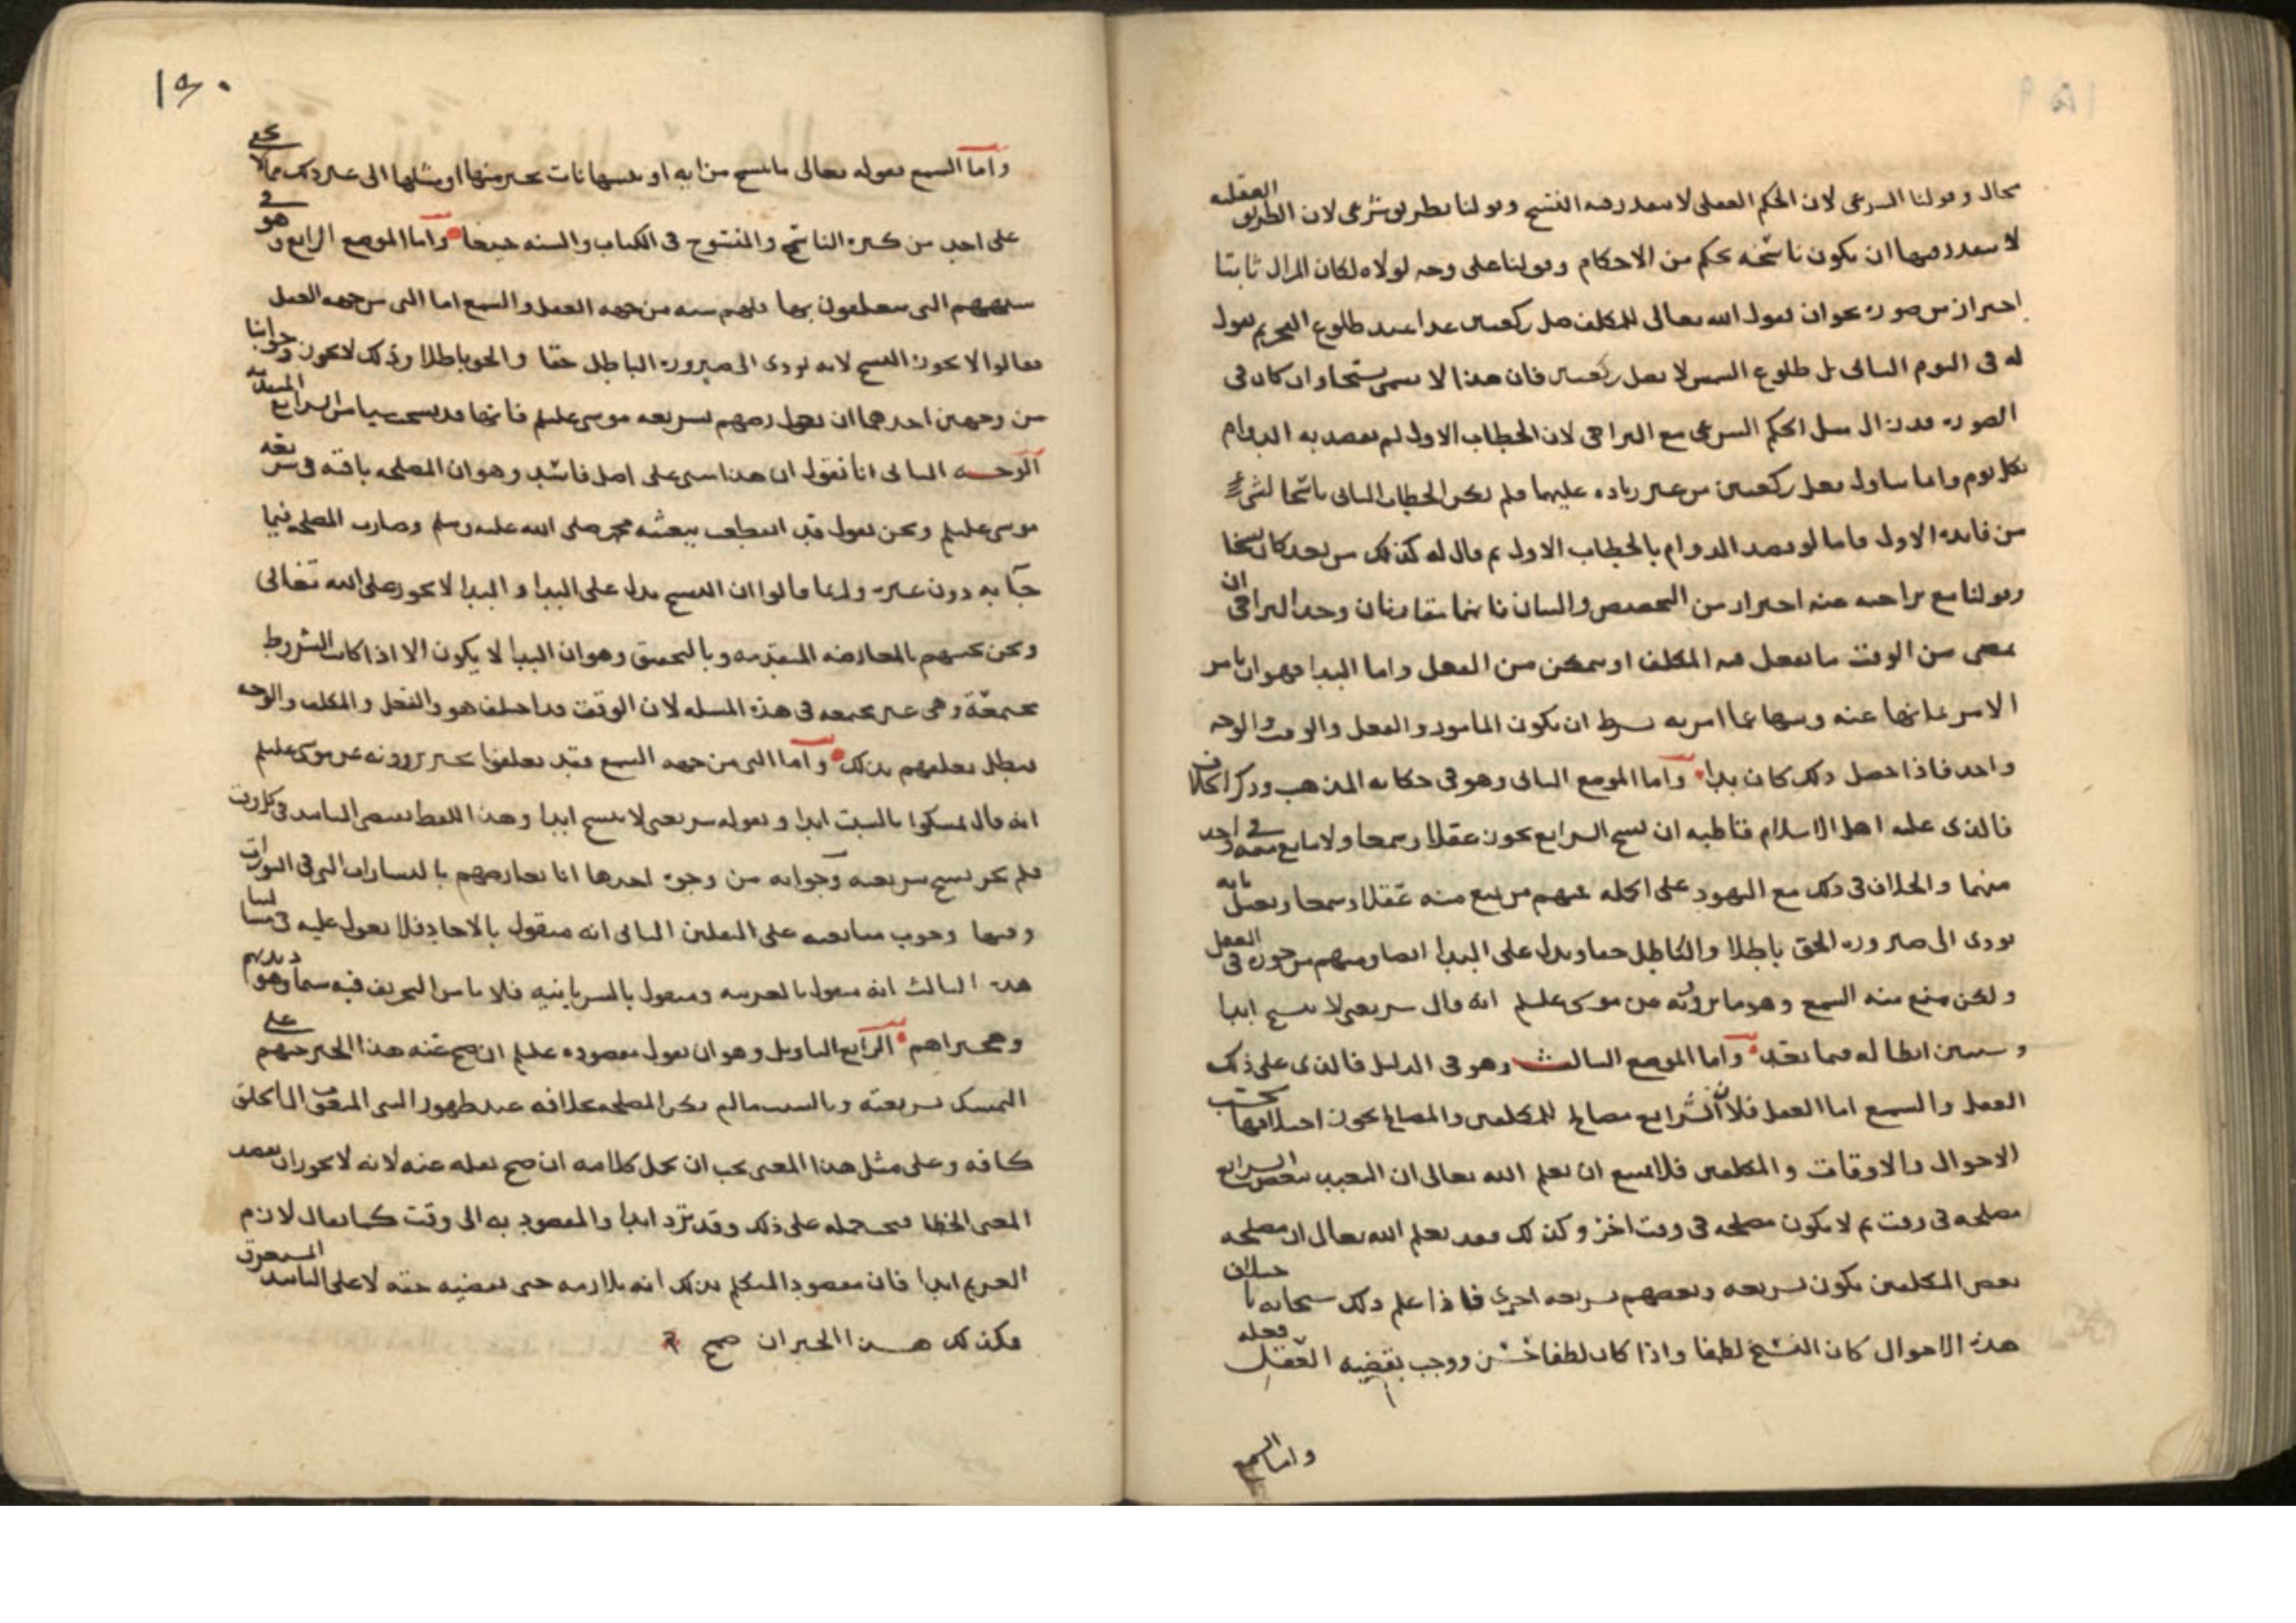 محال وقولنا الشرعي لان الحكم العقلي لا يتعدد فيه النسخ وقولنا بطريق شرعي لان الطريق العقلية
لا يتعدد فيها ان يكون ناسخة بحكم من الاحكام وقولنا على وجه لولاه لكان المزال ثابتا
احتراز من صورة نحو ان يقول الله تعالى للمكلف صل ركعتين غدا عند طلوع الفجر ثم يقول
له في اليوم الثاني بل طلوع الشمس لا يصل ركعتين فان هذا لا يسمى نسخا وان كان في
الصورة قد زال مثل الحكم الشرعي مع التراخي لان الخطاب الاول لم يقصد به الدوام
بكل يوم وانما تناول فعل ركعتين من غير زيادة عليهما فلم يكن الخطاب الثاني ناسخا لشيء
من فائدة الاول فاما لو قصد الدوام بالخطاب الاول ثم قال له كذلك من بعد كان نسخا
وقولنا مع تراخيه عنه احتراز من التخصيص والبيان فانهما متقارنان وحد التراخي ان
يمضي من الوقت ما يفعل فيه المكلف او يتمكن من الفعل واما البدا فهو ان يامر
الامر بما نها عنه وينها عما امر به بشرط ان يكون المامور والفعل والوقت والوجه
واحد فاذا حصل ذلك كان بدا واما الموضع الثاني وهو في حكاية المذهب وذكر الخلاف
فالذي عليه اهل الاسلام قاطبه ان نسخ الشرائع يجوز عقلا وسمعا ولا مانع منه في واحد
منهما والخلاف في ذلك مع اليهود على الجملة فمنهم من يمنع منه عقلا وسمعا ويعتل بانه
يودي الى صيرورة الحق باطلا والباطل حقا ويدل على البدا ايضا ومنهم من جوزه في العقل
ولكن منع منه السمع وهو ما يروونه عن موسى عليلم انه قال شريعتي لا تنسخ ابدا
وسنبين ابطاله فيما بعد واما الموضع الثالث وهو في الدليل فالذي على ذلك
العقل والسمع اما العقل فلان الشرائع مصالح للمكلفين والمصالح يجوز اختلافها بحسب
الاحوال والاوقات والمكلفين فلا يمتنع ان يعلم الله تعالى ان التعبد ببعض الشرائع
مصلحه في وقت ثم لا يكون مصلحه في وقت اخر وكذلك فقد يعلم الله تعالى ان مصلحه
بعض المكلفين يكون بشريعه وبعضهم بشريعه اخرى فاذا علم ذلك سبحانه باختلاف
هذه الاحوال كان النسخ لطفا واذا كان لطفا حسن ووجب بقضيه العقل فعله
واما السمع
١٦٠
واما السمع فقوله تعالى ما ننسخ من ايه او ننسها نات بخير منها او مثلها الى غير ذلك مما لا يخفى
على احد من كثرة الناسخ والمنسوخ في الكتاب والسنه جميعا واما الموضع الرابع وهو في
شبههم التي يتعلقون بها فلهم شبه من جهه العقل والسمع اما التي من جهه العقل
فقالوا لا يجوز النسخ لانه يودي الى صيرورة الباطل حقا والحق باطلا وذلك لا يجوز وجوابنا
من وجهين احدهما ان نعارضهم بشريعه موسى عليلم فانها قد نسخت شيا من الشرايع المتقدمه
الوجه الثاني انا نقول ان هذا مبني على اصل فاسد وهو ان المصلحه باقيه في شريعه
موسى عليلم ونحن نقول قد انقطعت ببعثه محمد صلى الله عليه وسلم وصارت المصلحه فيما
جآ به دون غيره وانما قالوا ان النسخ يدل على البدا والبدا لا يجوز على الله تعالى
ونحن نجيبهم بالمعارضه المتقدمه وبالتحقيق وهو ان البدا لا يكون الا اذا كانت الشروط
مجتمعة وهي غير مجتمعه في هذه المسله لان الوقت قد اختلف هو والفعل والمكلف والوجه
فبطل تعلقهم بذلك واما التي من جهه السمع فقد تعلقوا بخبر يروونه عن موسى عليلم
انه قال تمسكوا بالسبت ابدا وبقوله شريعتي لا تنسخ ابدا وهذا اللفظ يقتضي التابيد في كل وقت
فلم يجز نسخ شريعته وجوابه من وجوه احدها انا نعارضهم بالبشارات التي في التورات
وفيها وجوب متابعته على الثقلين الثاني انه منقول بالاحاد فلا يعول عليه في مسالتنا
هذه الثالث انه منقول بالعربيه ومنقول بالسريانيه فلا نامن التحريف فيه سيما وهو ديدنهم
وهجيراهم الرابع التاويل وهو ان نقول مقصوده عليلم ان صح عنه هذا الخبر حثهم على
التمسك بشريعته وبالسبت مالم يكن المصلحه بخلافه عند ظهور النبي المبعوث الى الخلق
كافه وعلى مثل هذا المعنى يجب ان يحمل كلامه ان صح نقله عنه لانه لا يجوز ان يقصد
المعنى الخطا فيجب حمله على ذلك وقد ترد ابدا والمقصود به الى وقت كما يقال لازم
الغريم ابدا فان مقصود المتكلم بذلك انه يلازمه حتى يقضيه حقه لا على التابيد المستغرق
فكذلك هذا الخبر ان صح